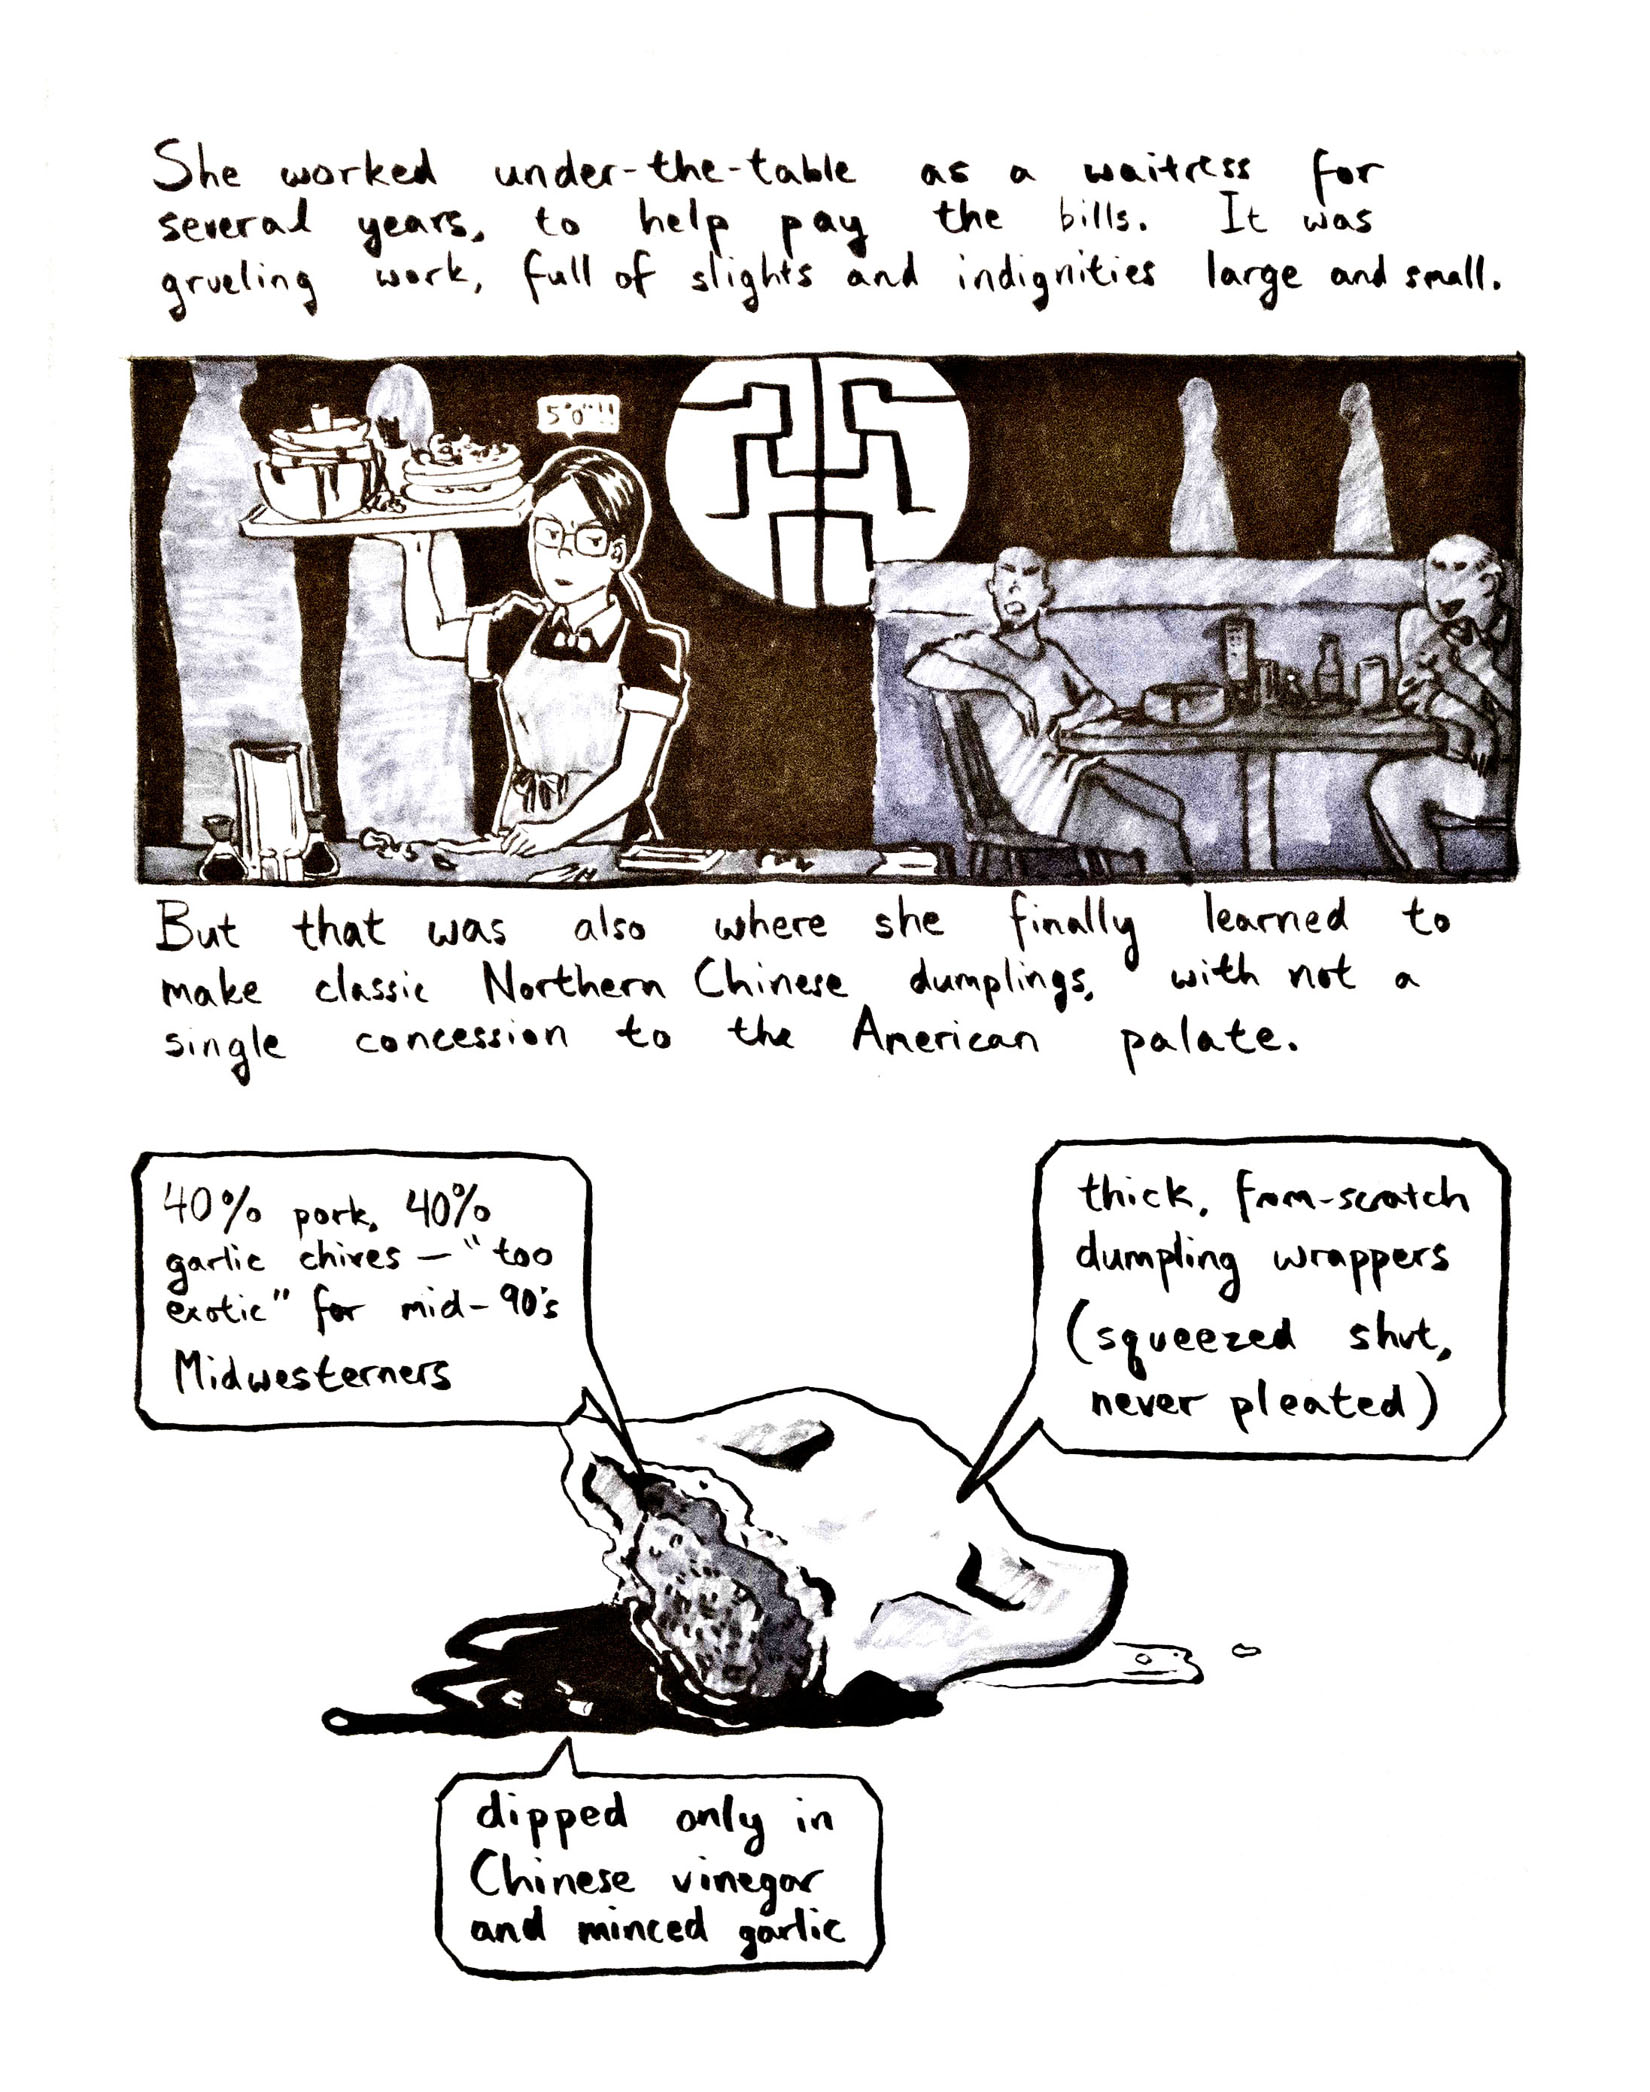 She worked under-the-table as a waitress for
several years, to help pay the bills. It was
grueling work, full of slights and indignities large and small.
5'0"!!
But that was also where she finally learned to
make classic Northern Chinese dumplings, with not a
single concession to the American palate.
40% pork, 40%
garlic chives — "too
exotic" for mid-90's
Midwesterners
thick, from-scratch
dumpling wrappers
(squeezed shut,
never pleated)
dipped only in
Chinese vinegar
and minced garlic